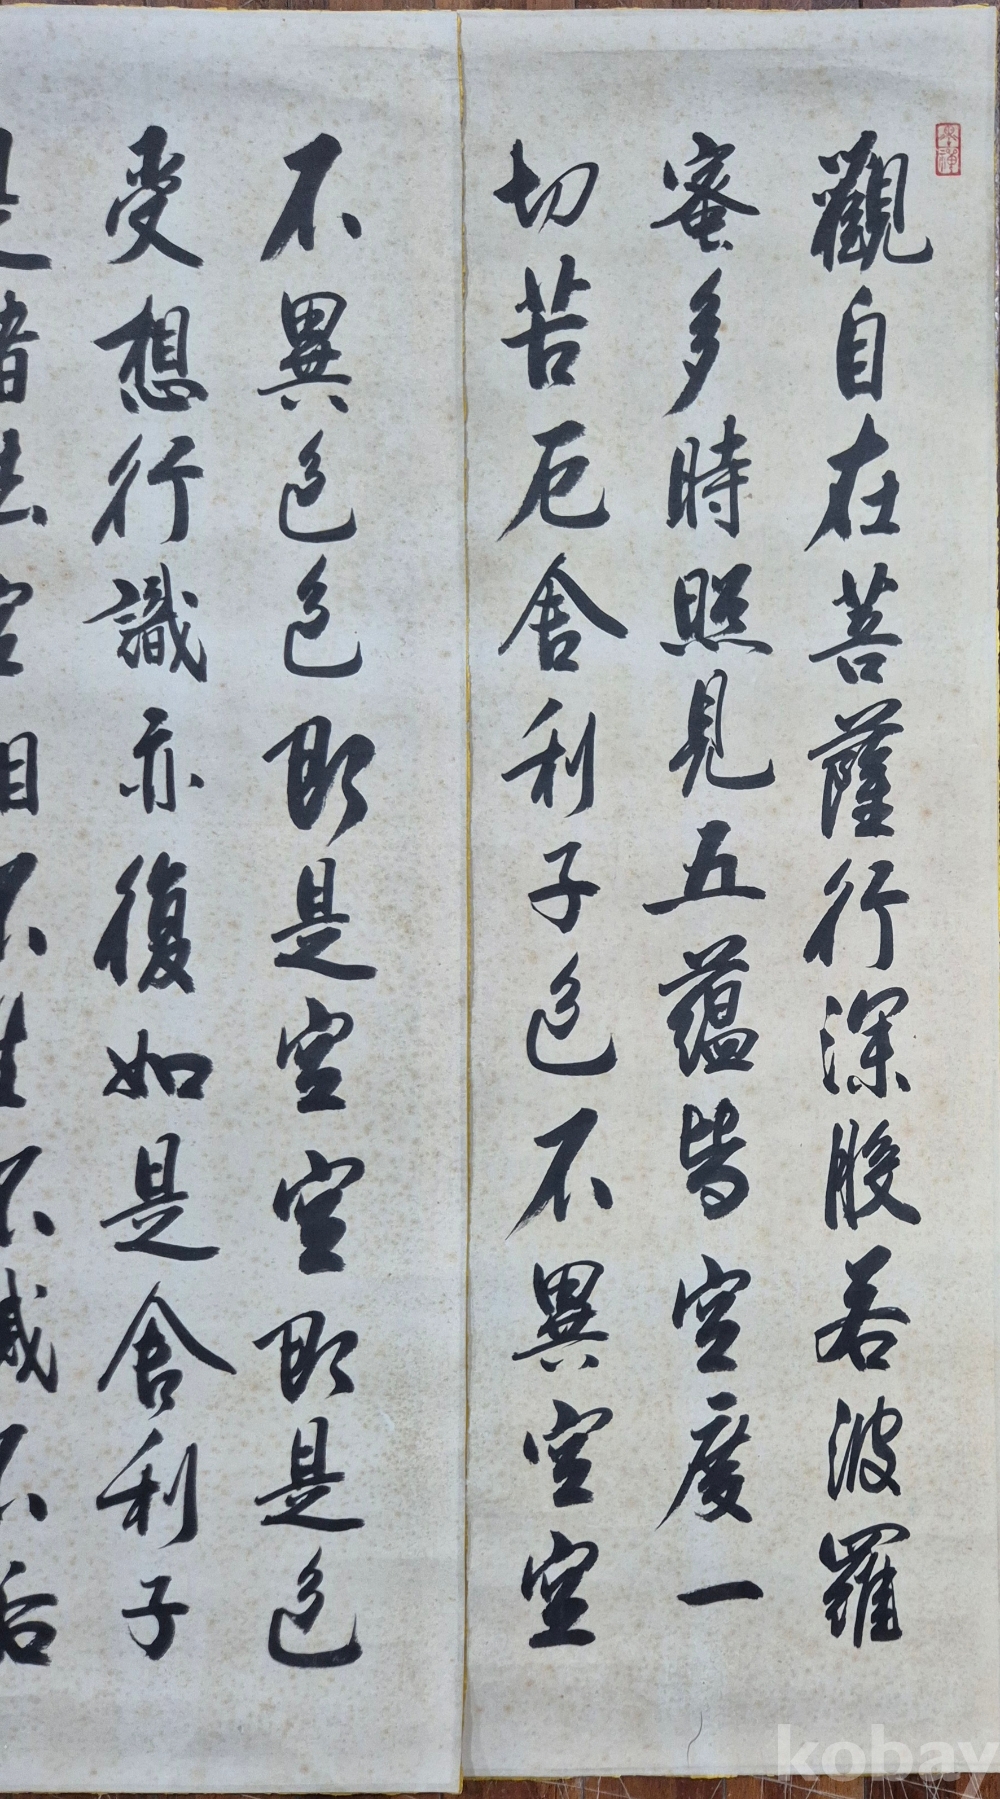 觀自在菩薩行深般若波羅
蜜多時照見五蘊皆空度一
切苦厄舍利子色不異空空
不異色色即是空空即是色
受想行識亦復如是舍利子
是諸法空相不生不滅不垢
kobay